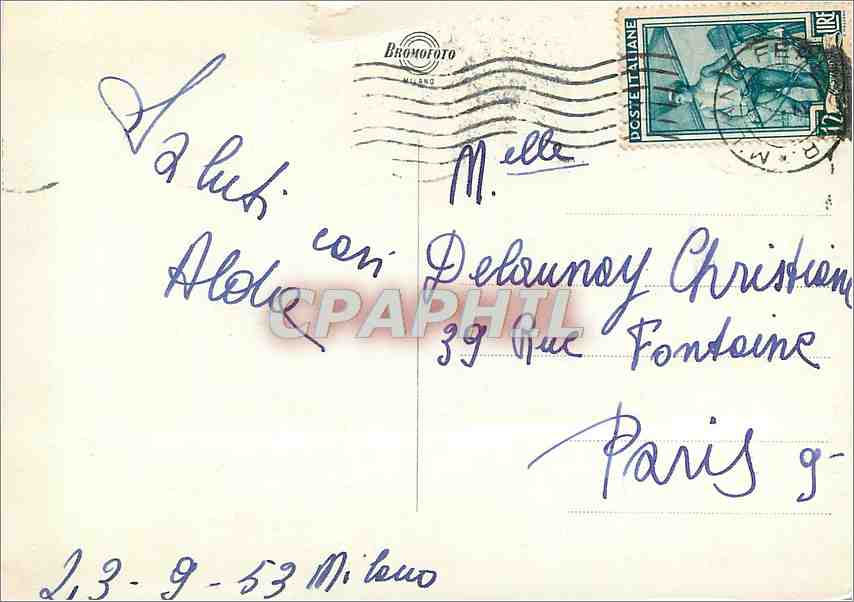 BROMOFOTO
MILANO
POSTE ITALIANE
LIRE
12
Saluti
cari
Alda
M.elle
Delaunay Christiane
39 Rue Fontaine
Paris 9-
CPAPHIL
23-9-53 Milano